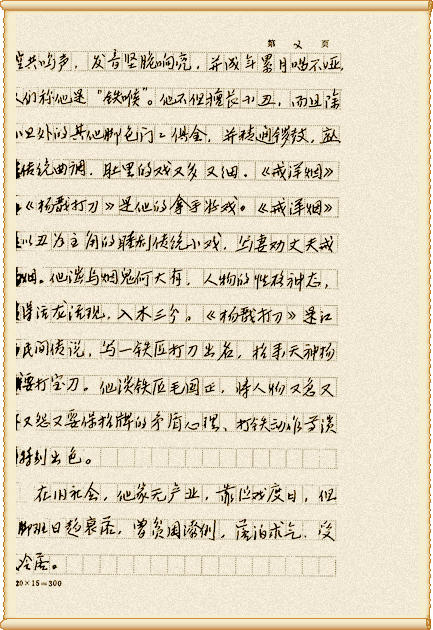 第 2 页
共鸣声，发音坚脆响亮，并成年累月唱不哑，
人们称他是“铁喉”。他不但擅长小丑，而且除
小丑外的其他脚色门门俱全，并精通锣鼓，熟
传统曲调，肚里的戏又多又细。《戒洋烟》
《杨戬打刀》是他的拿手好戏。《戒洋烟》
以丑为主角的睦剧传统小戏，写妻劝丈夫戒
烟。他演与烟鬼何大有，人物的性格神态，
得活龙活现，入木三分。《杨戬打刀》是江
民间传说，写一铁匠打刀出名，招来天神杨
要打宝刀。他演铁匠毛国正，将人物又名又
又怨又要保招牌的矛盾心理、打铁动作等演
特别出色。
在旧社会，他家无产业，靠做戏度日，但
脚班日趋衰落，曾贫困潦倒，落泊求乞，没
全居。
20×15=300